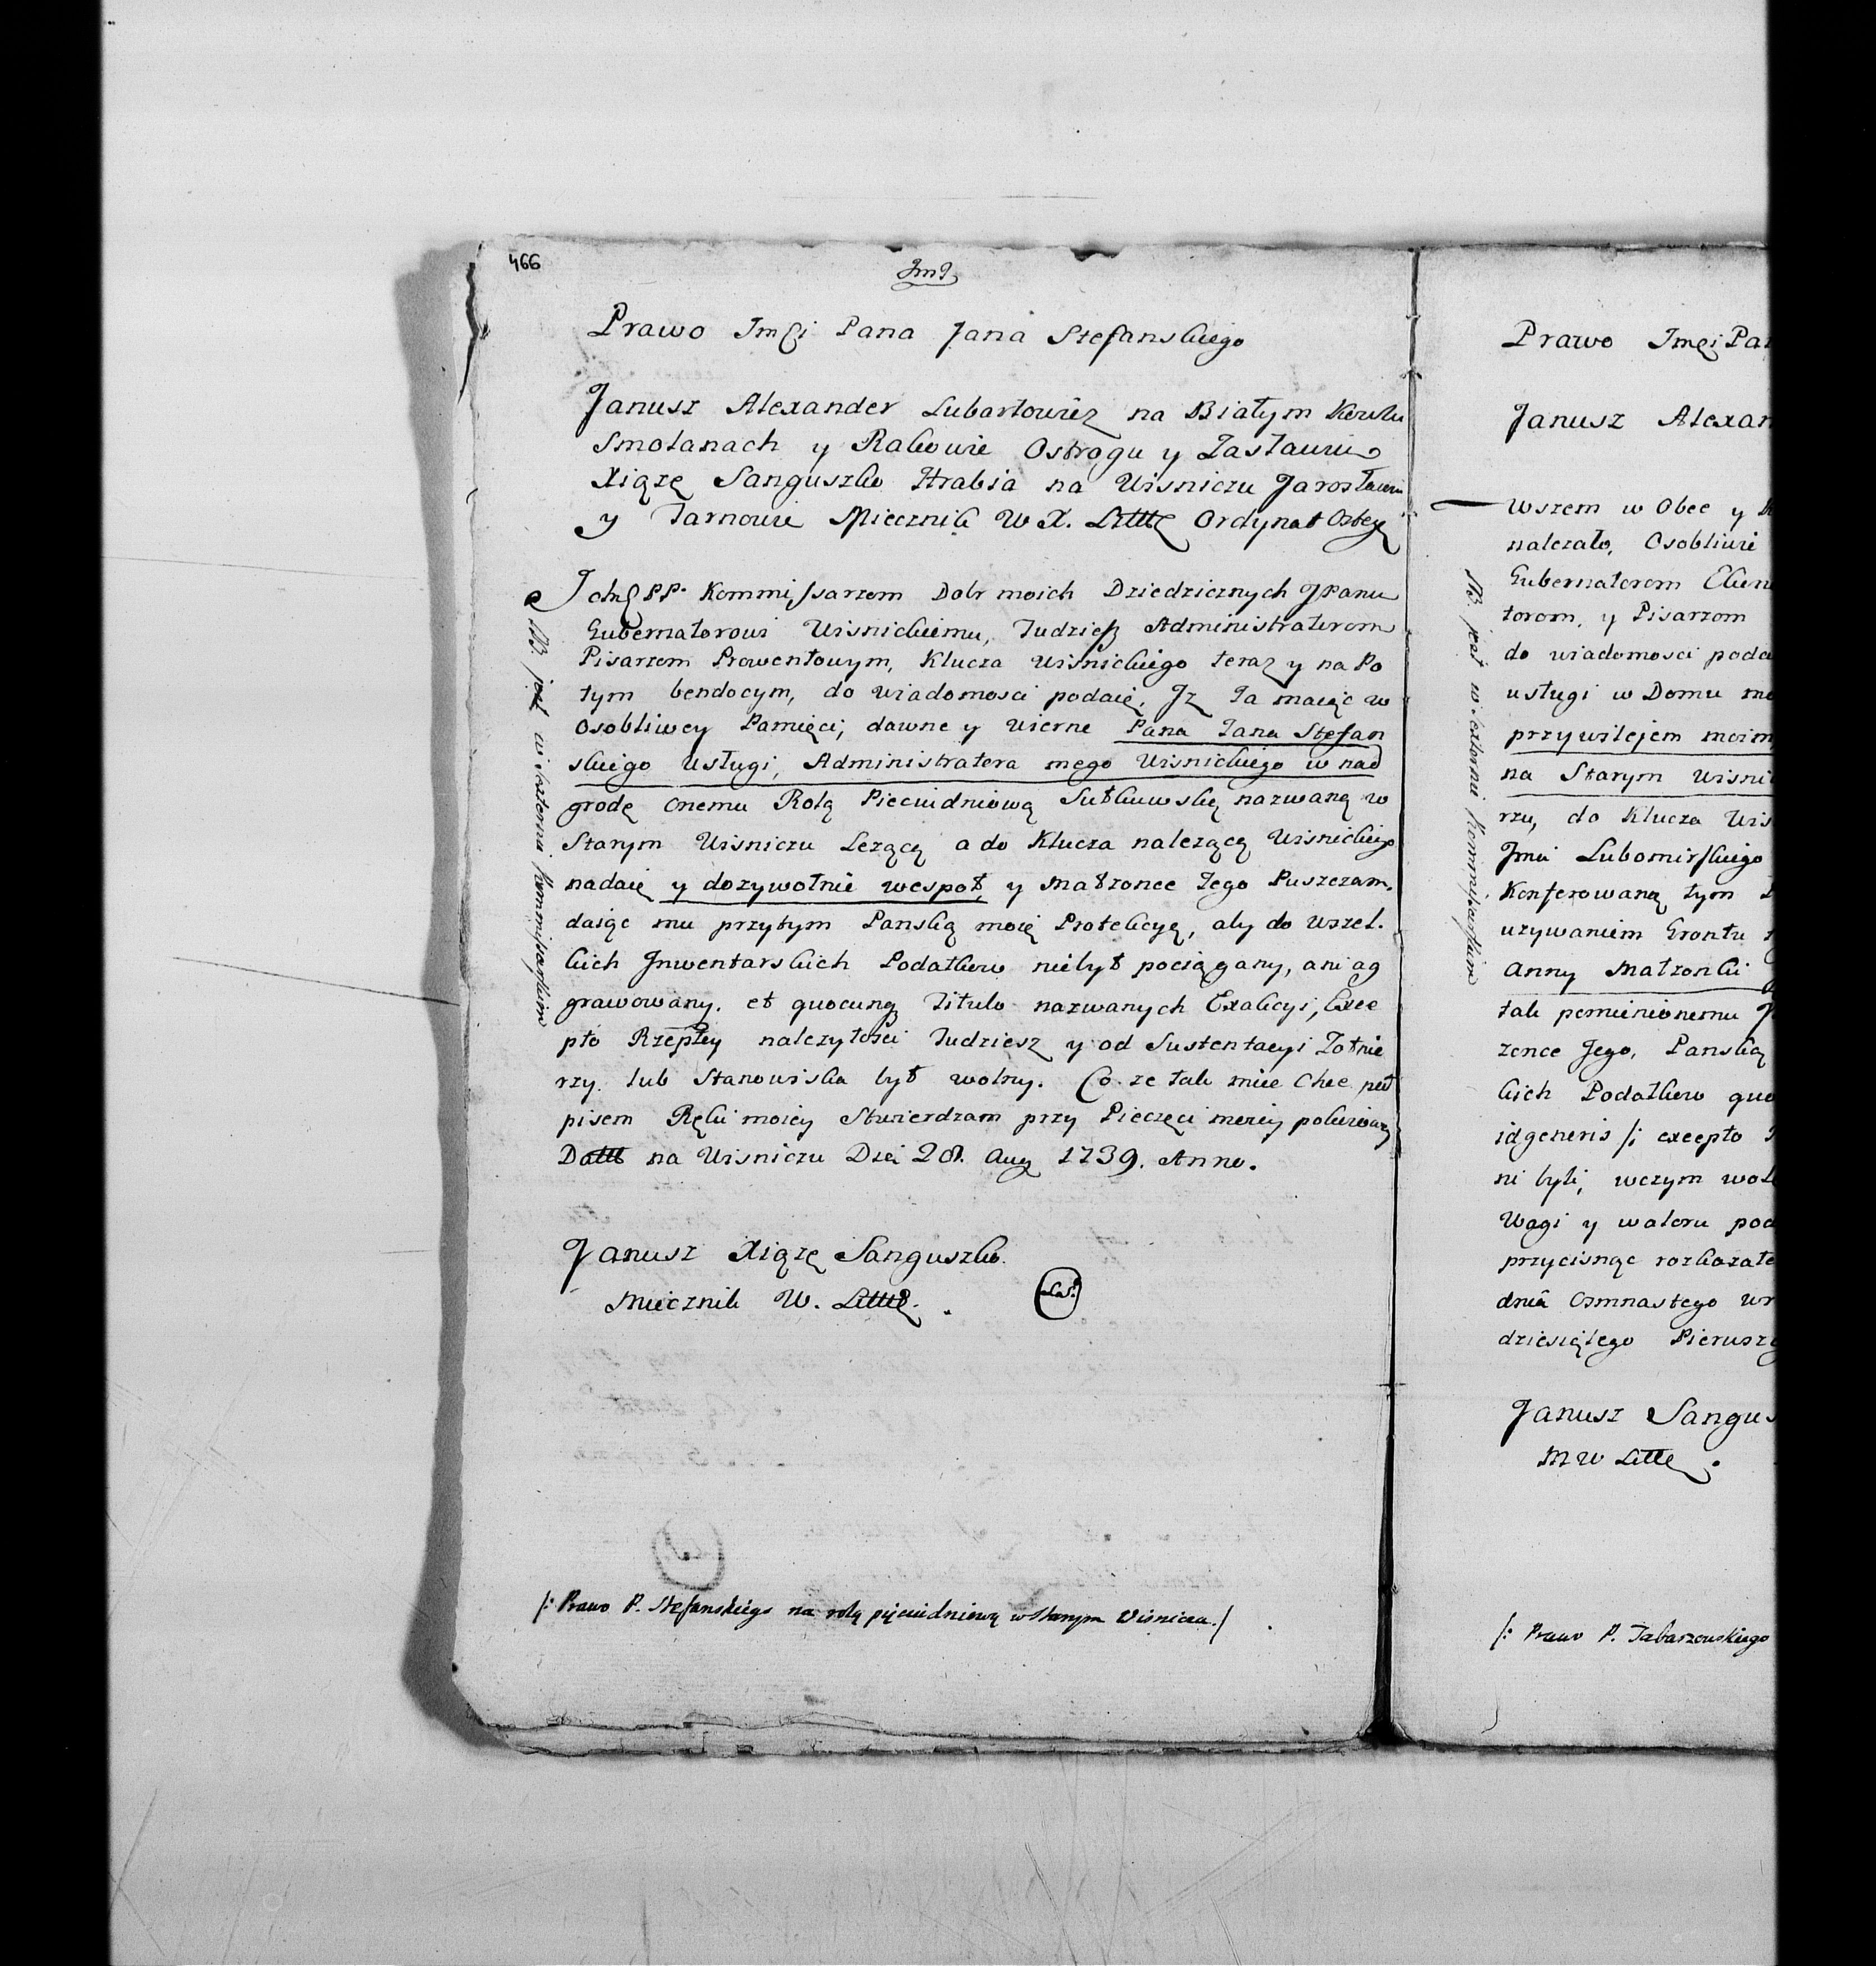 466
Prawo Jmci Pana Jana Stefanskiego
Janusz Alexander Lubartowicz na Białym Kowlu
Smolanach y Rakowie Ostrogu y Zasławiu
Xiąze Sanguszko Hrabia na Wisniczu Jarosławiu
y Tarnowie Miecznik W X. Littt Ordynat
Ichę PP. Kommissarzom Dobr moich Dziedzicznych JPanu
Gubernatorowi Wisnickiemu, Tudziesz Administratorom
Pisarzom Prowentowym, Klucza Wisnickiego teraz y na Po
tym bendocym, do wiadomosci podaię, Jz Ja maiąc w
Osobliwey Pamięci, dawne y wierne Pana Jana Stefan
skiego Usługi, Administratora mego Wisnickiego w nad
grodę onemu Rolą Pieciudniową nazwaną w
Starym Wisniczu Lezącą a do Klucza nalezącą Wisnickiego
nadaię y dozywotnie wespoł, y Małzonce Jego Puszczam,
daiąc mu przytym Panską moię Protekcyą, aby do wszel.
kich Jnwentarskich Podatkow niebył pociągany, ani ag
grawowany. et quocunq Titulo nazwanych Exakcyi, Exce
pto Rzeptey nalezytosci Tudziesz y od Sustentacyi Zołnie
rzy. lub Stanowiska był wolny. Co ze tak miec Chce pod
pisem Ręki moiey Stwierdzam przy Pieczęci moiey pokoiowey
Dattt na Wisniczu Dnia 28. Aug 1739. Anno.
Janusz Xiąze Sanguszko.
Miecznik W. Litttt.
L.S.
NB. jest w Extornii Kommissarskim
/: Prawo P. Stefanskiego na rolą pięciudniową w Starym Wisniczu. /
Prawo Jmci Pa
Janusz Alexan
Wszem w Obec y
nalezało, Osobliwie
Gubernatorom
torom, y Pisarzom
do wiadomosci poda
usługi w Domu mo
przywilejem moim
na Starym Wisni
rzu, do Klucza Wis
Jmci Lubomirskiego
Konferowaną tym
uzywaniem Grontu
Anny Małzonki
tak pomienionemu
zonce Jego, Panską
kich Podatkow quo
id generis /: excepto
ni byli, w czym wol
Wagi y waloru pod
przycisnąc rozkazałe
dnia Osmnastego wr
dziesiątego Pierwszeg
Janusz Sangus
M W Littt.
NB. jest w Extornii Kommissarskim
/: Prawo P. Tabaszowskiego